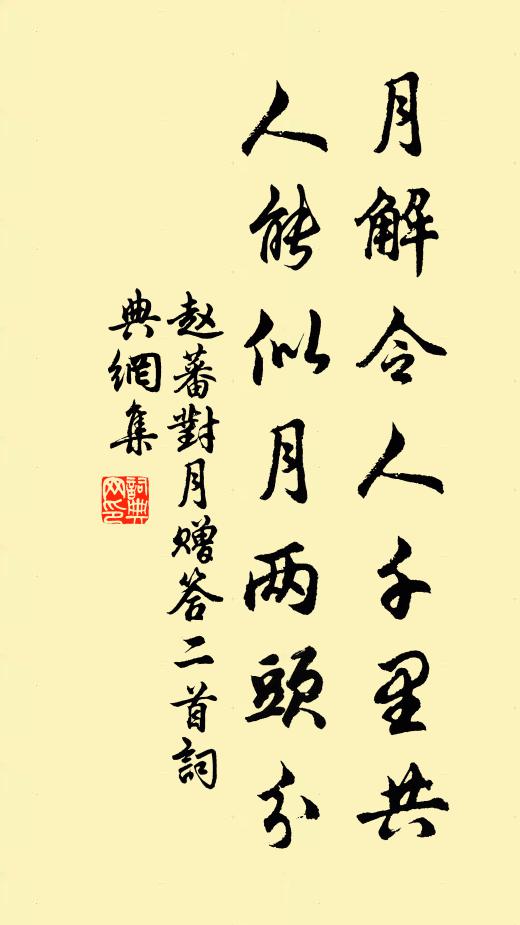 月解令人千里共
人能似月两頭分
赵蕃對月赠答二首詞
典網集
詞典网印